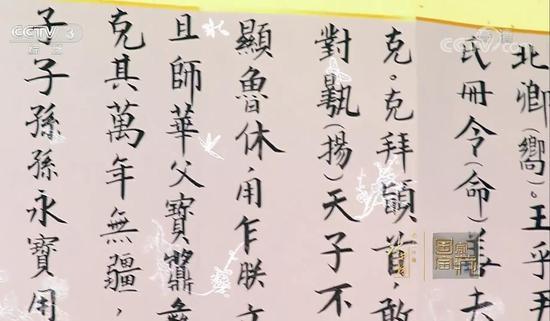 CCTV 3
综艺
CCTV
北卿(嚮)。王乎尹
氏冊令(命)善夫
克。克拜首，敢
對(揚)天子不
顯魯休，用乍朕文
且師華父寶彝
克其萬年無疆，
子子孫孫永寶用